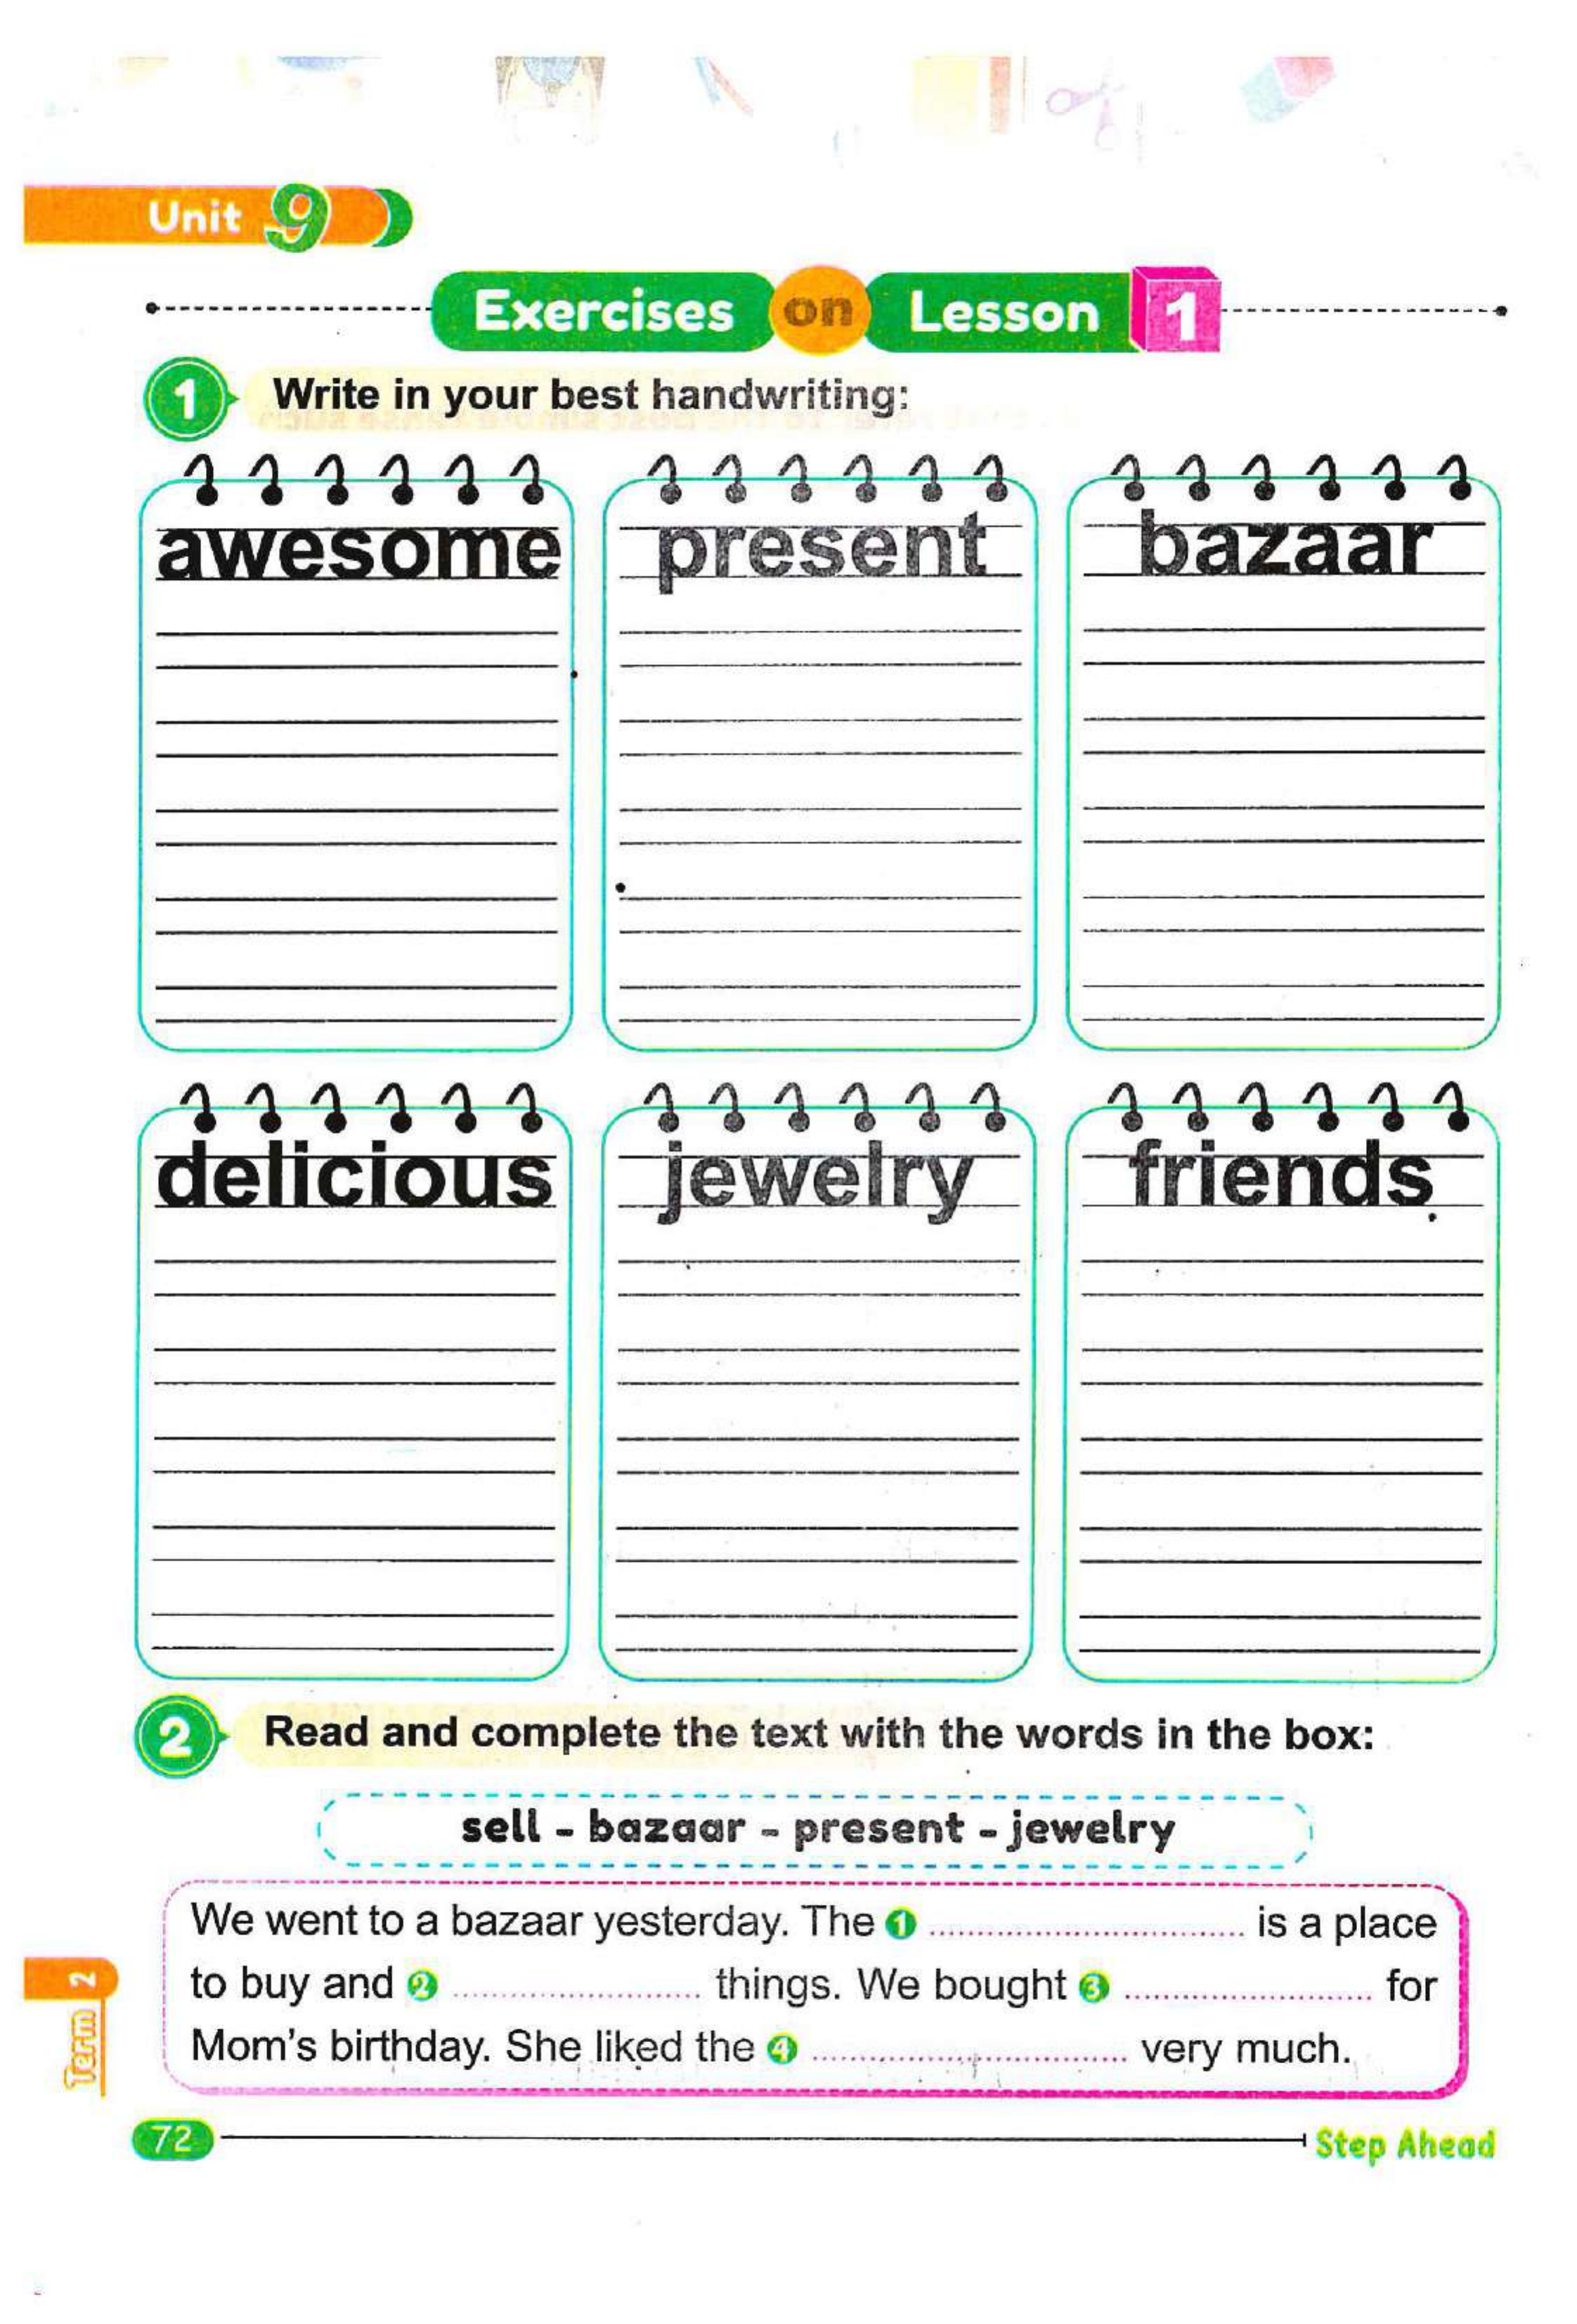 Unit 9
Exercises on Lesson 1
1 Write in your best handwriting:
awesome present bazaar
delicious jewelry friends
2 Read and complete the text with the words in the box:
sell - bazaar - present - jewelry
We went to a bazaar yesterday. The 1 .................... is a place
to buy and 2 .................... things. We bought 3 .................... for
Mom's birthday. She liked the 4 .................... very much.
Term 2
72 Step Ahead